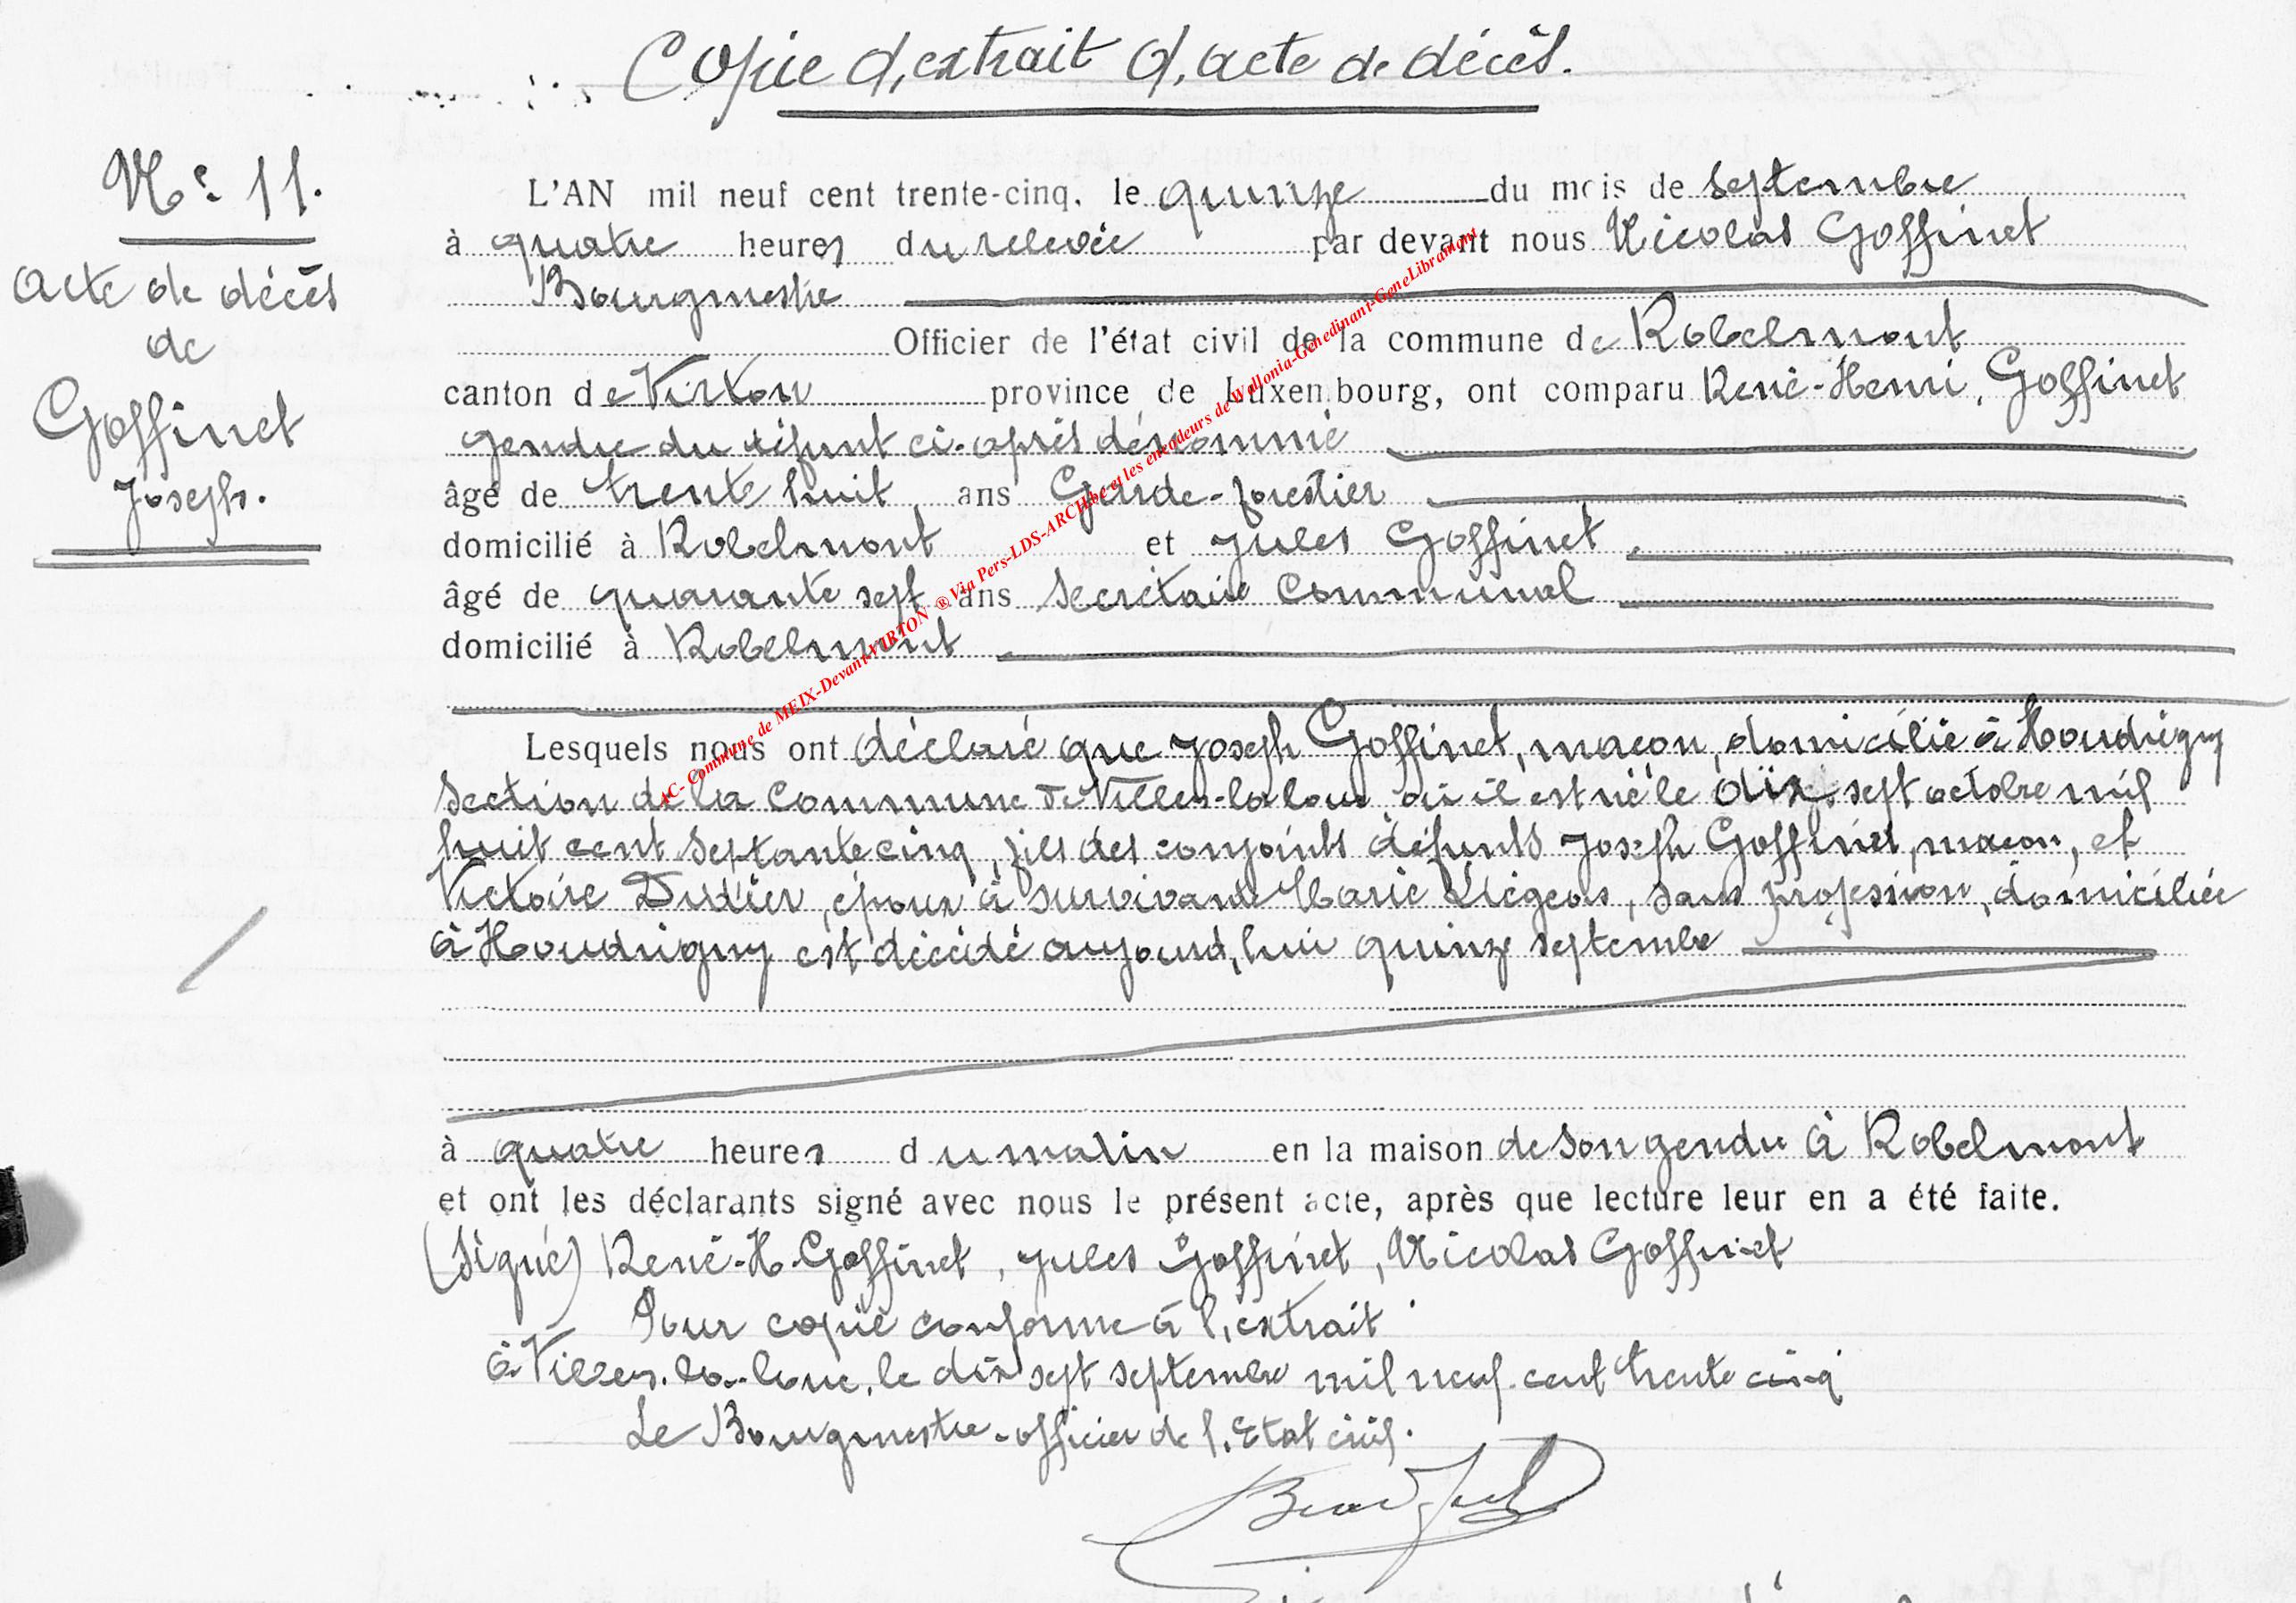 Copie d'extrait d'acte de décès.
N° 11.
Acte de décès
de
Goffinet
Joseph.
L'AN mil neuf cent trente-cinq, le quinze du mois de septembre
à quatre heures du relevée par devant nous Nicolas Goffinet
Bourgmestre
Officier de l'état civil de la commune de Robelmont
canton de Virton province de Luxembourg, ont comparu René-Henri, Goffinet
gendre du défunt ci-après dénommé
âgé de trente huit ans Garde-forestier
domicilié à Robelmont et Jules Goffinet
âgé de quarante sept ans Secrétaire Communal
domicilié à Robelmont
Lesquels nous ont déclaré que Joseph Goffinet, maçon, domicilié à Houdrigny
Section de la Commune de Villers-la-loue où il est né le dix sept octobre mil
huit cent septante cinq, fils des conjoints défunts Joseph Goffinet, maçon, et
Victoire Didier, époux à survivance Marie Liégeois, sans profession, domiciliée
à Houdrigny est décédé aujourd'hui quinze septembre
à quatre heures du matin en la maison de son gendre à Robelmont
et ont les déclarants signé avec nous le présent acte, après que lecture leur en a été faite.
(Signé) René-H-Goffinet, Jules Goffinet, Nicolas Goffinet
Pour copie conforme à l'extrait
à Villers-la-loue, le dix sept septembre mil neuf cent trente cinq
Le Bourgmestre-officier de l'Etat civil.
AC- Commune de MEIX-Devant-VIRTON ® Via Pers-LDS-ARCH.be et les encodeurs de Wallonia-Genedinant-GeneLibramont